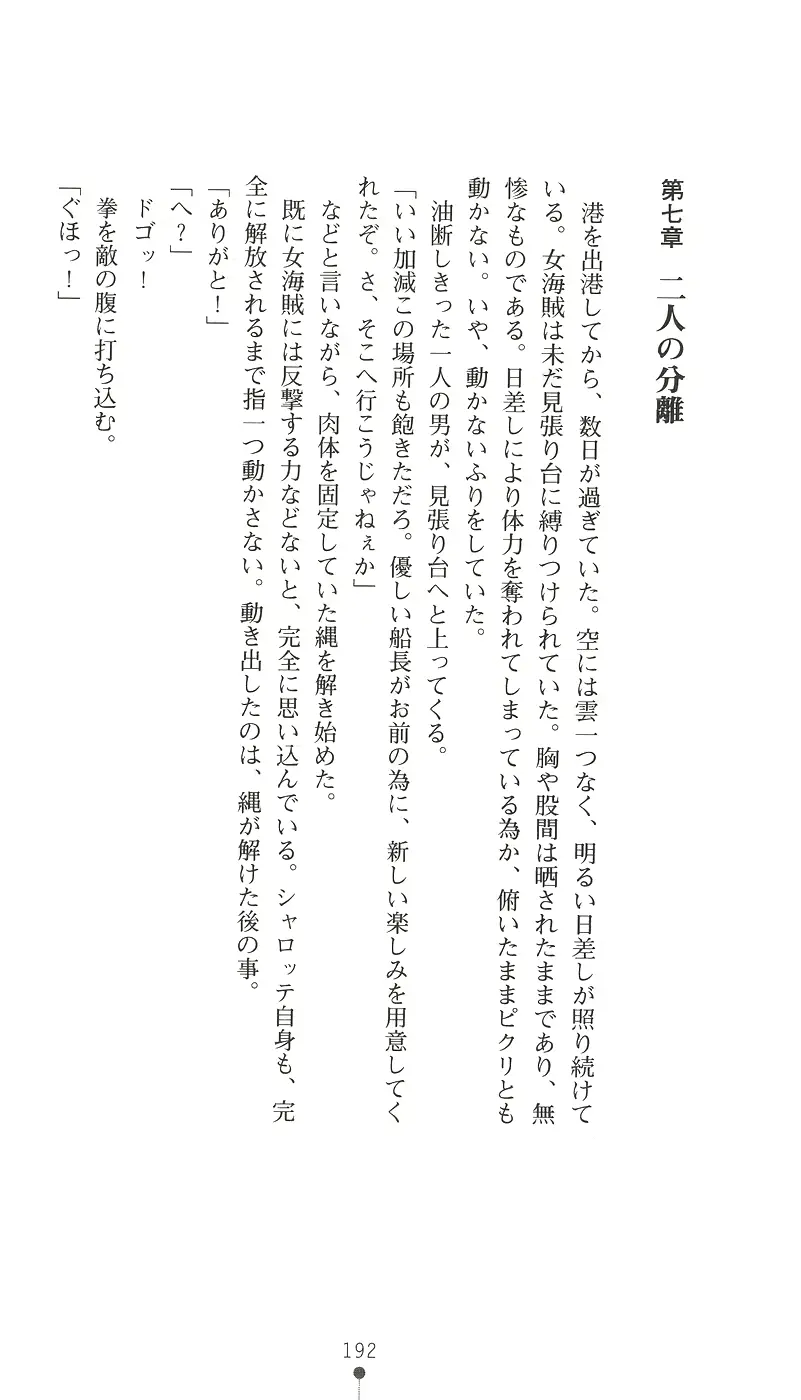 第七章　二人の分離
　港を出港してから、数日が過ぎていた。空には雲一つなく、明るい日差しが照り続けて
いる。女海賊は未だ見張り台に縛りつけられていた。胸や股間は晒されたままであり、無
惨なものである。日差しにより体力を奪われてしまっている為か、俯いたままピクリとも
動かない。いや、動かないふりをしていた。
　油断しきった一人の男が、見張り台へと上ってくる。
「いい加減この場所も飽きただろ。優しい船長がお前の為に、新しい楽しみを用意してく
れたぞ。さ、そこへ行こうじゃねぇか」
　などと言いながら、肉体を固定していた縄を解き始めた。
　既に女海賊には反撃する力などないと、完全に思い込んでいる。シャロッテ自身も、完
全に解放されるまで指一つ動かさない。動き出したのは、縄が解けた後の事。
「ありがと！」
「へ？」
　ドゴッ！
　拳を敵の腹に打ち込む。
「ぐほっ！」
192